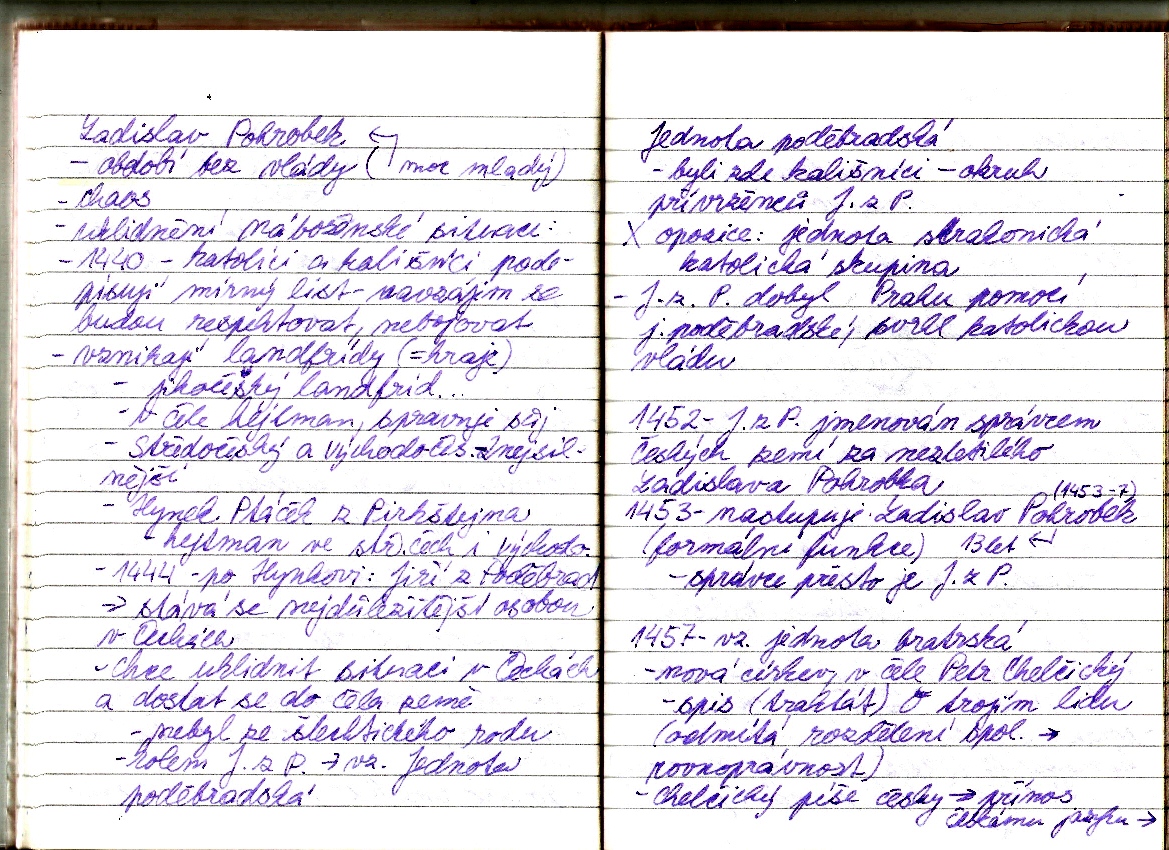 Ladislav Pohrobek
- období bez vlády (moc mladý)
- chaos
- uklidnění náboženské situaci:
- 1440 - katolíci a kališníci pode-
pisují mírný list - navzájim se
budou respektovat, nebojovat
- vznikají landfrídy (=kraje)
- jihočeský landfríd...
- v čele hejtman, spravuje sbj
- Středočeský a východočes. = nejsil-
nější
- Hynek Ptáček z Pirkštejna
hejtman ve stř.čech i východo.
- 1444 - po Hynkovi: Jiří z Poděbrad
→ stává se nejdůležitější osobou
v Čechách
- chce uklidnit situaci v Čechách
a dostat se do čela země
- nebyl ze šlechtického rodu
- kolem J. z P. → vz. Jednota
poděbradská
Jednota poděbradská
- byli zde kališníci - okruh
přívrženců J. z P.
X opozice: jednota strakonická
katolická skupina
- J. z. P. dobyl Prahu pomocí
j. poděbradské, svrhl katolickou
vládu
1452- J. z P. jmenován správcem
českých zemí za nezletilého
Ladislava Pohrobka
(1453-7)
1453- nastupuje Ladislav Pohrobek
(formální funkce) 13 let
- správce přesto je J. z P.
1457- vz. jednota bratrská
- nová církev, v čele Petr Chelčický
- spis (traktát) O trojím lidu
(odmítá rozdělení spol. →
rovnoprávnost)
- Chelčický píše česky → přínos
českému jazyku →